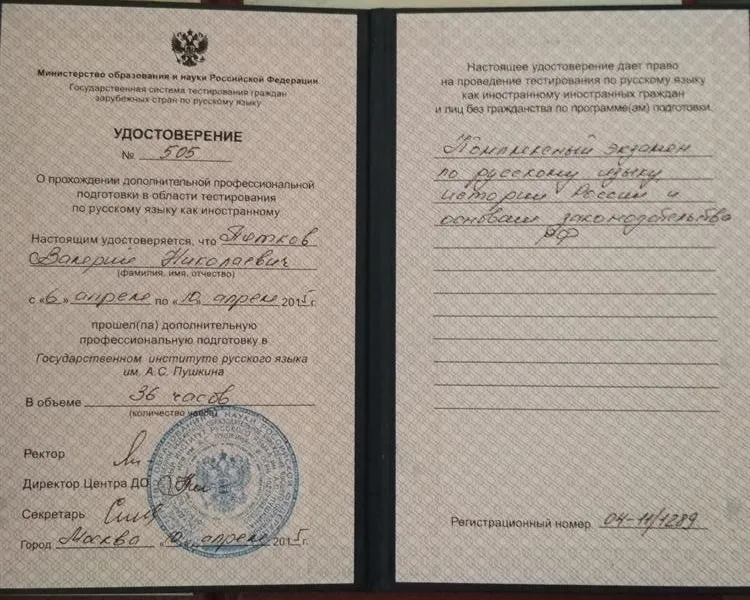 Министерство образования и науки Российской Федерации
Государственная система тестирования граждан
зарубежных стран по русскому языку
УДОСТОВЕРЕНИЕ
№ 505
О прохождении дополнительной профессиональной
подготовки в области тестирования
по русскому языку как иностранному
Настоящим удостоверяется, что Пятков
Валерий Николаевич
(фамилия, имя, отчество)
с «6» апреля по «10» апреля 2015 г.
прошел(ла) дополнительную
профессиональную подготовку в
Государственном институте русского языка
им. А.С. Пушкина
В объеме 36 часов
(количество часов)
Ректор
Директор Центра ДО
Секретарь
Город Москва 10 апреля 2015г.
Настоящее удостоверение дает право
на проведение тестирования по русскому языку
как иностранному иностранных граждан
и лиц без гражданства по программе(ам) подготовки.
Комплексный экзамен
по русскому языку
истории России и
основам законодательства
РФ
Регистрационный номер 04-11/1289